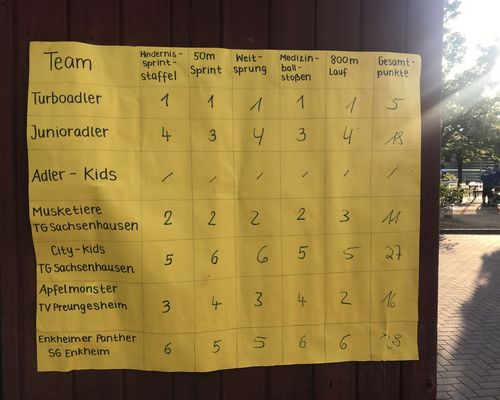 Team Hindernis-sprint-staffel 50m Sprint Weit-sprung Medizin-ball-stoßen 800m Lauf Gesamt-punkte
Turboadler 1 1 1 1 1 5
Junioradler 4 3 4 3 4 18
Adler - Kids / / / / / /
Musketiere TG Sachsenhausen 2 2 2 2 3 11
City-Kids TG Sachsenhausen 5 6 6 5 5 27
Apfelmonster TV Preungesheim 3 4 3 4 2 16
Enkheimer Panther SG Enkheim 6 5 5 6 6 28